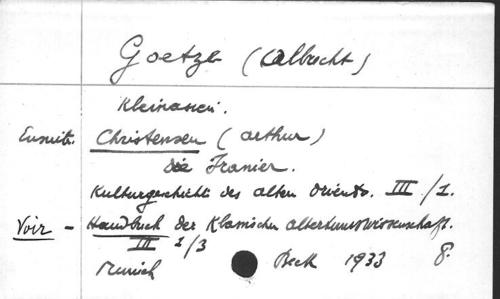 Goetze (Albrecht)
Kleinasien.
Ensuite. Christensen (Arthur)
die Iranier.
Kulturgeschichte des alten Orients. III /1.
Voir - Handbuch der Klassischen altertumswissenschaft.
III 1/3
Munich Beck 1933 8°.